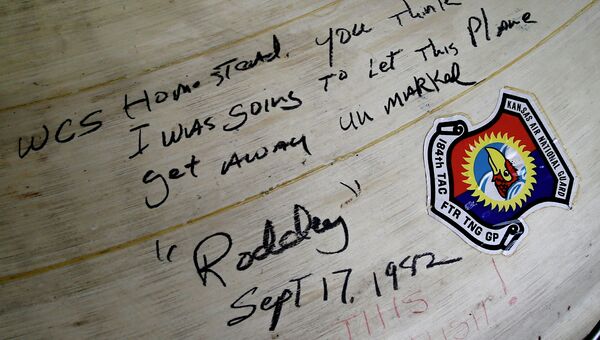 WCS Homestead. You Think
I WAS GOING TO LET THIS PLANE
get AWAY UN MARKED
"Roddey"
Sept 17, 1982
THIS
KANSAS AIR NATIONAL GUARD
184th TAC
FTR TNG GP